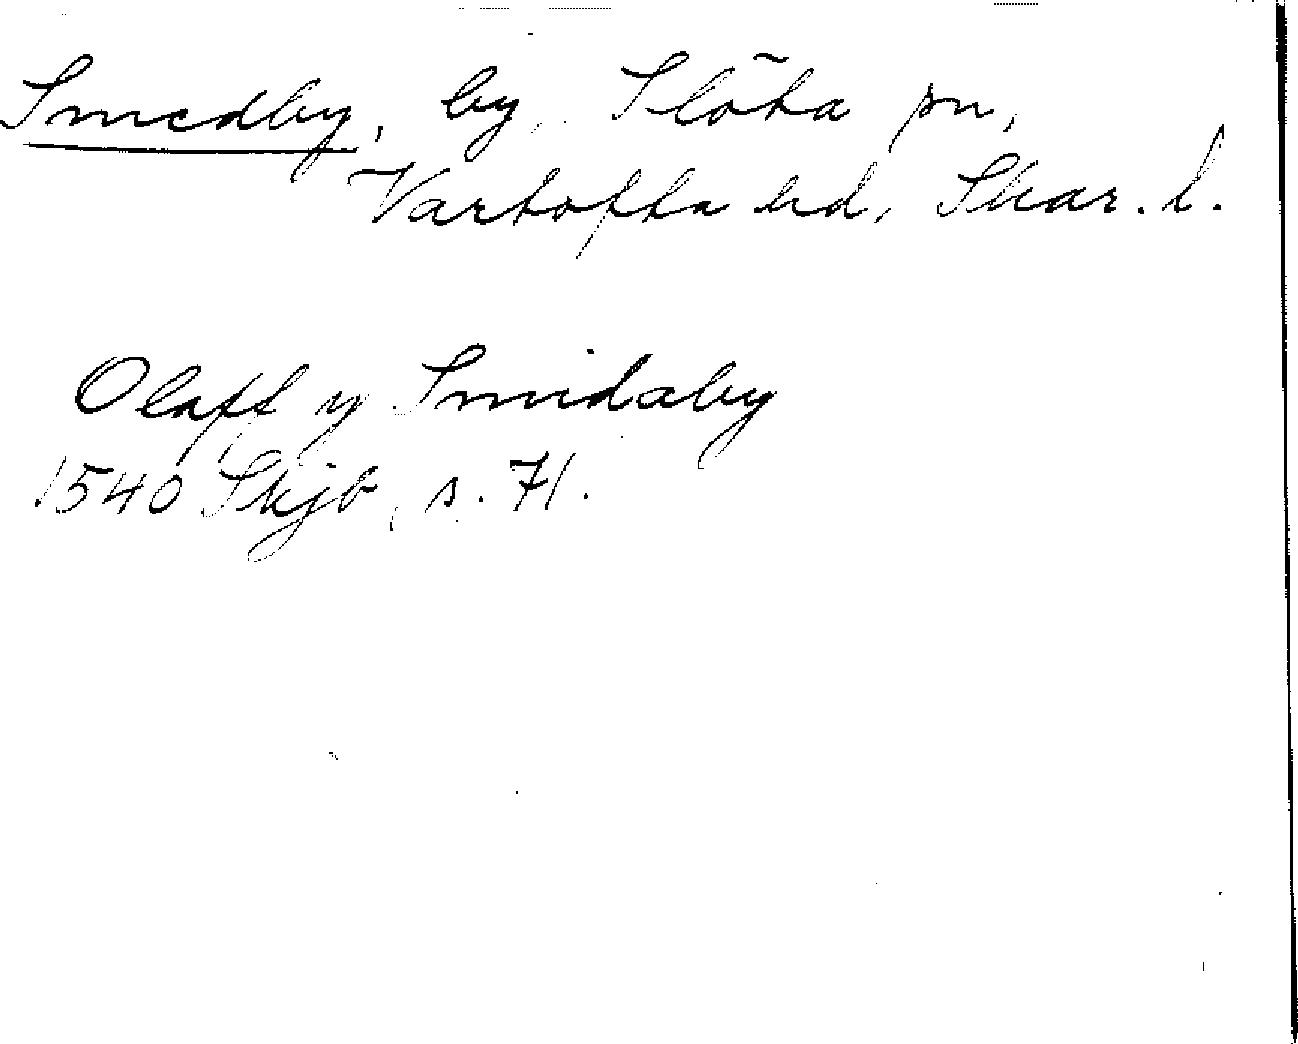 Smedby, by, Slöta sn,
Vartofta hd, Skar. l.
Olaff y Smidaby
1540 Skjb, s. 71.